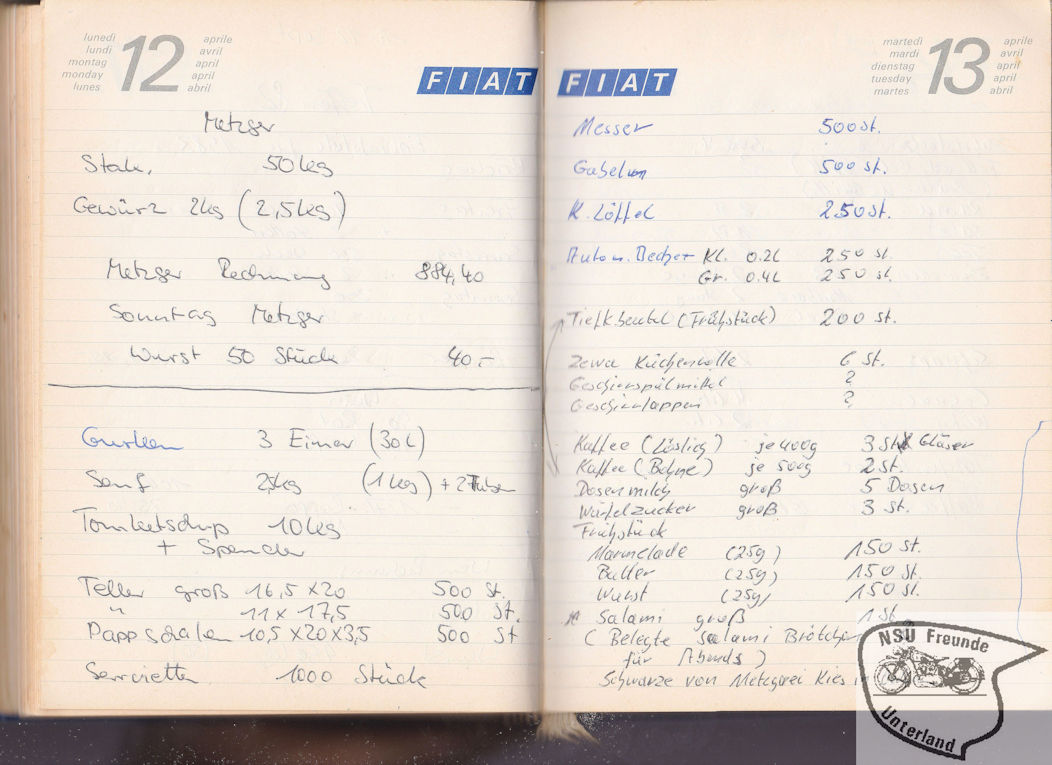 lunedì
lundi
montag
monday
lunes
12
aprile
avril
april
april
abril
FIAT
Metzger
50 kg
Gewürz 2kg (2,5kg)
Metzger Rechnung 884,40
Sonntag Metzger
Wurst 50 Stück 40.-
Gurken 3 Eimer (30L)
Senf 2kg (1kg) + 2 Tuben
Tomketschup 10kg
+ Spender
Teller groß 16,5 x 20 500 St.
" 11 x 17,5 500 St.
Pappschalen 10,5 x 20 x 3,5 500 St
Servietten 1000 Stück
FIAT
martedì
mardi
dienstag
tuesday
martes
13
aprile
avril
april
april
abril
Messer 500 St.
Gabeln 500 St.
K. Löffel 250 St.
Autom. Becher Kl. 0.2L 250 St.
Gr. 0.4L 250 St.
Tiefk.beutel (Frühstück) 200 St.
Zewa Küchenrolle 6 St.
Geschirrspülmittel ?
Geschirrlappen ?
Kaffee (Löslich) je 400g 3 St. Gläser
Kaffee (Bohne) je 500g 2 St.
Dosenmilch groß 5 Dosen
Würfelzucker groß 3 St.
Frühstück
Marmelade (25g) 150 St.
Butter (25g) 150 St.
Wurst (25g) 150 St.
* Salami groß 1 St.
(Belegte Salami Brötchen
für Abends)
Schwarze von Metzgerei
NSU Freunde
Unterland